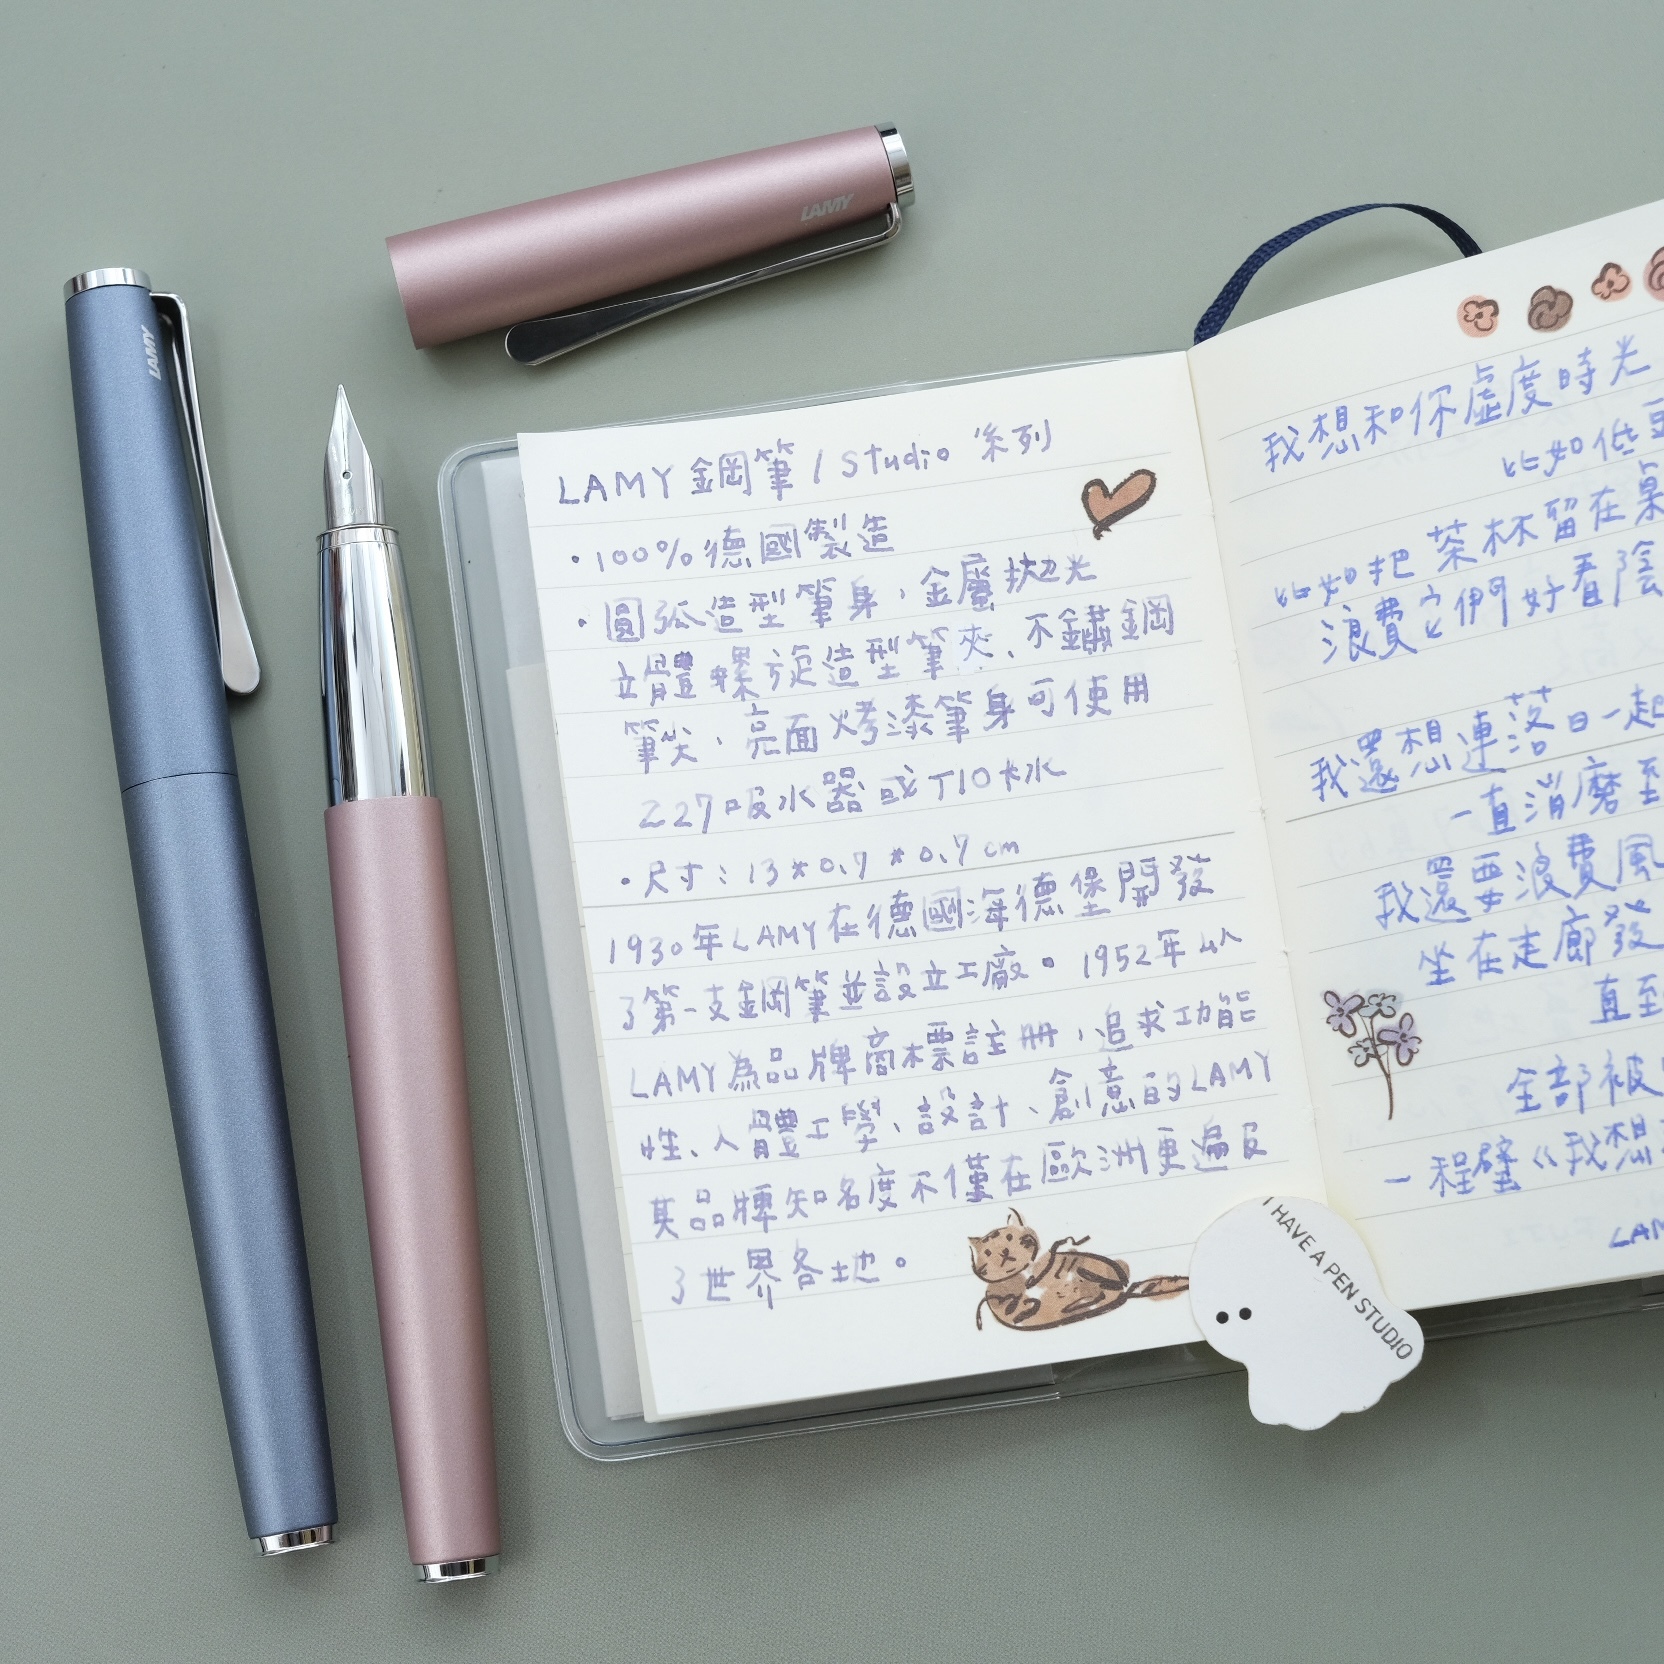 LAMY
LAMY
LAMY 鋼筆 / Studio 系列
·100% 德國製造
·圓弧造型筆身,金屬拋光
立體螺旋造型筆夾、不鏽鋼
筆尖、亮面烤漆筆身可使用
Z27吸水器或T10卡水
·尺寸:13*0.7*0.7cm
1930年LAMY在德國海德堡開發
了第一支鋼筆並設立工廠。1952年以
LAMY為品牌商標註冊,追求功能
性、人體工學、設計、創意的LAMY
其品牌知名度不僅在歐洲更遍及
了世界各地。
我想和你虛度時光
比如低
比如把茶杯留在桌
浪費它們好看陰
我還想連落日一起
一直消磨至
我還要浪費風
坐在走廊發
直至
全部被
一程璧《我想
LAM
I HAVE A PEN STUDIO